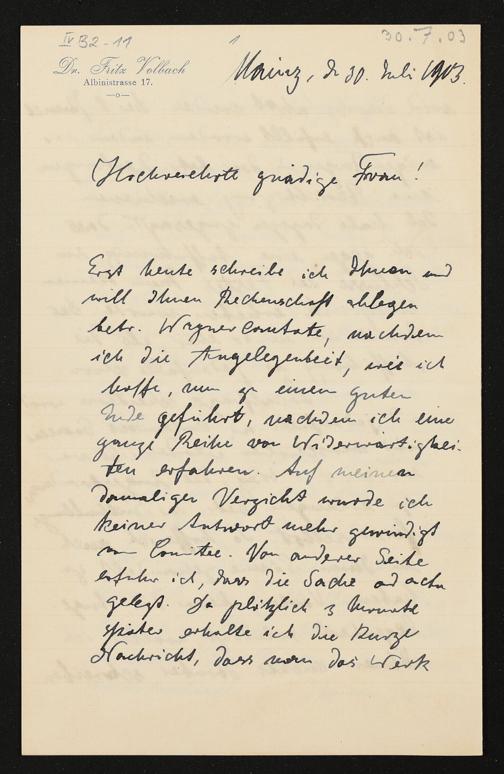 IV B2-11
1
30.7.03
Dr. Fritz Volbach
Albinistrasse 17.
Mainz, d 30. Juli 1903.
Hochverehrte gnädige Frau!
Erst heute schreibe ich Ihnen und
will Ihnen Rechenschaft ablegen
betr. Wagner Cantate, nachdem
ich die Angelegenheit, wie ich
hoffe, nun zu einem guten
Ende geführt, nachdem ich eine
ganze Reihe von Widerwärtigkei-
ten erfahren. Auf meinen
damaligen Verzicht wurde ich
keiner Antwort mehr gewürdigt
vom Comitee. Von anderer Seite
erfuhr ich, dass die Sache ad acta
gelegt. Da plötzlich 3 Monate
später erhalte ich die kurze
Nachricht, dass man das Werk